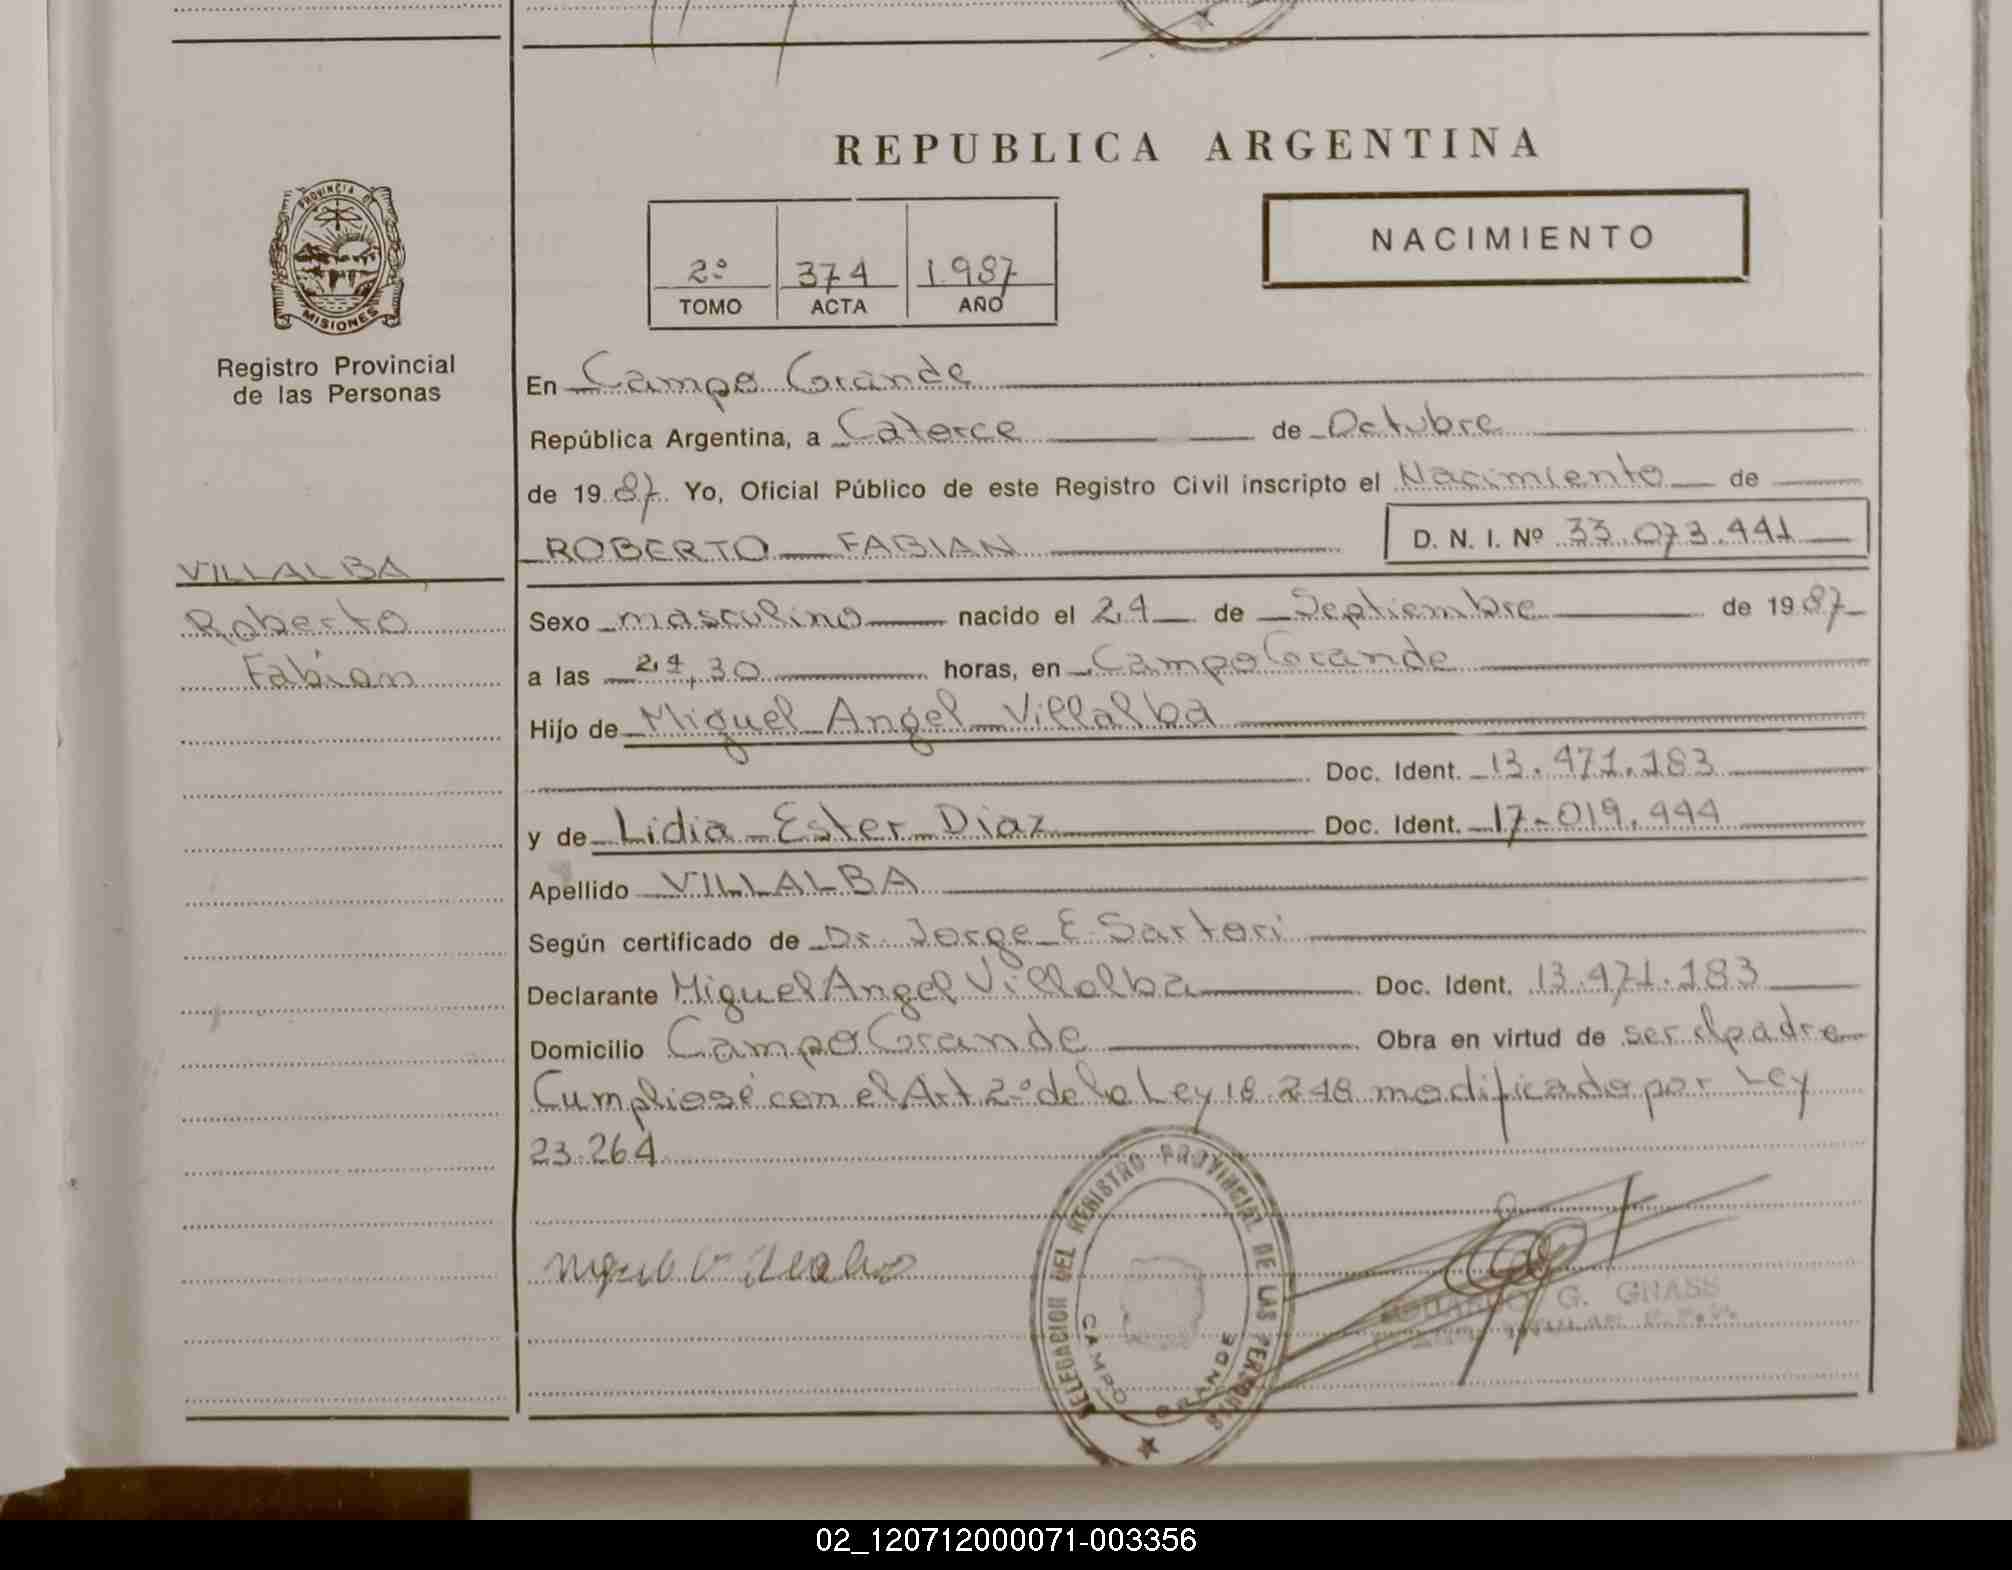 REPUBLICA ARGENTINA
PROVINCIA DE
MISIONES
Registro Provincial
de las Personas
VILLALBA,
Roberto
Fabian
2º 374 1.987
TOMO ACTA AÑO
NACIMIENTO
En Campo Grande
República Argentina, a Catorce de Octubre
de 19 87 Yo, Oficial Público de este Registro Civil inscripto el Nacimiento de
ROBERTO FABIAN D. N. I. Nº 33.073.441
Sexo masculino nacido el 24 de Septiembre de 19 87
a las 24,30 horas, en Campo Grande
Hijo de Miguel Angel Villalba
Doc. Ident. 13.471.183
y de Lidia Ester Diaz Doc. Ident. 17-019.444
Apellido VILLALBA
Según certificado de Dr. Jorge E Sartori
Declarante Miguel Angel Villalba Doc. Ident. 13.471.183
Domicilio Campo Grande Obra en virtud de ser el padre
Cumpliose con el Art 2º de la Ley 18.248 modificado por Ley
23.264
DELEGACION DEL REGISTRO PROVINCIAL DE LAS PERSONAS
CAMPO GRANDE
EDUARDO G. GNASS
02_120712000071-003356